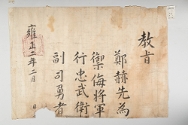 教旨
鄭赫先為
禦侮將軍
行忠武衛
副司勇者
雍正二年二月 日